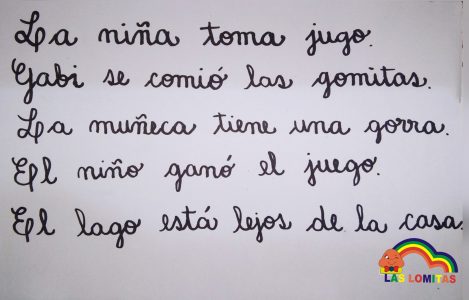 La niña toma jugo.
Gabi se comió las gomitas.
La muñeca tiene una gorra.
El niño ganó el juego.
El lago está lejos de la casa.
LAS LOMITAS